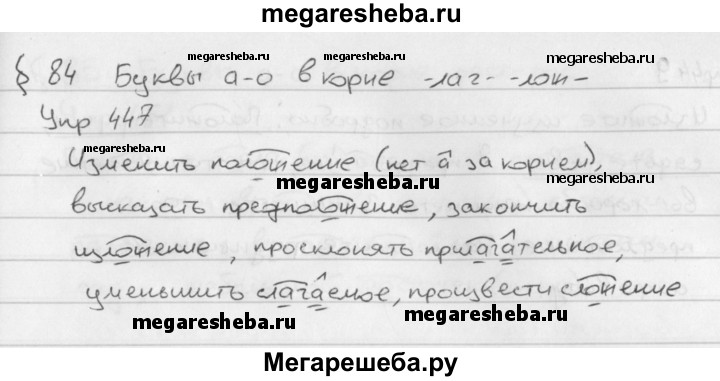 megaresheba.ru
§ 84 Буквы а-о в корне -лаг- -лож-
megaresheba.ru megaresheba.ru megaresheba.ru
Упр 447
megaresheba.ru
Изменить положение (нет а за корнем),
megaresheba.ru megaresheba.ru
высказать предположение, закончить
изложение, просклонять прилагательное,
уменьшить слагаемое, произвести сложение
megaresheba.ru megaresheba.ru
Мегарешеба.ру